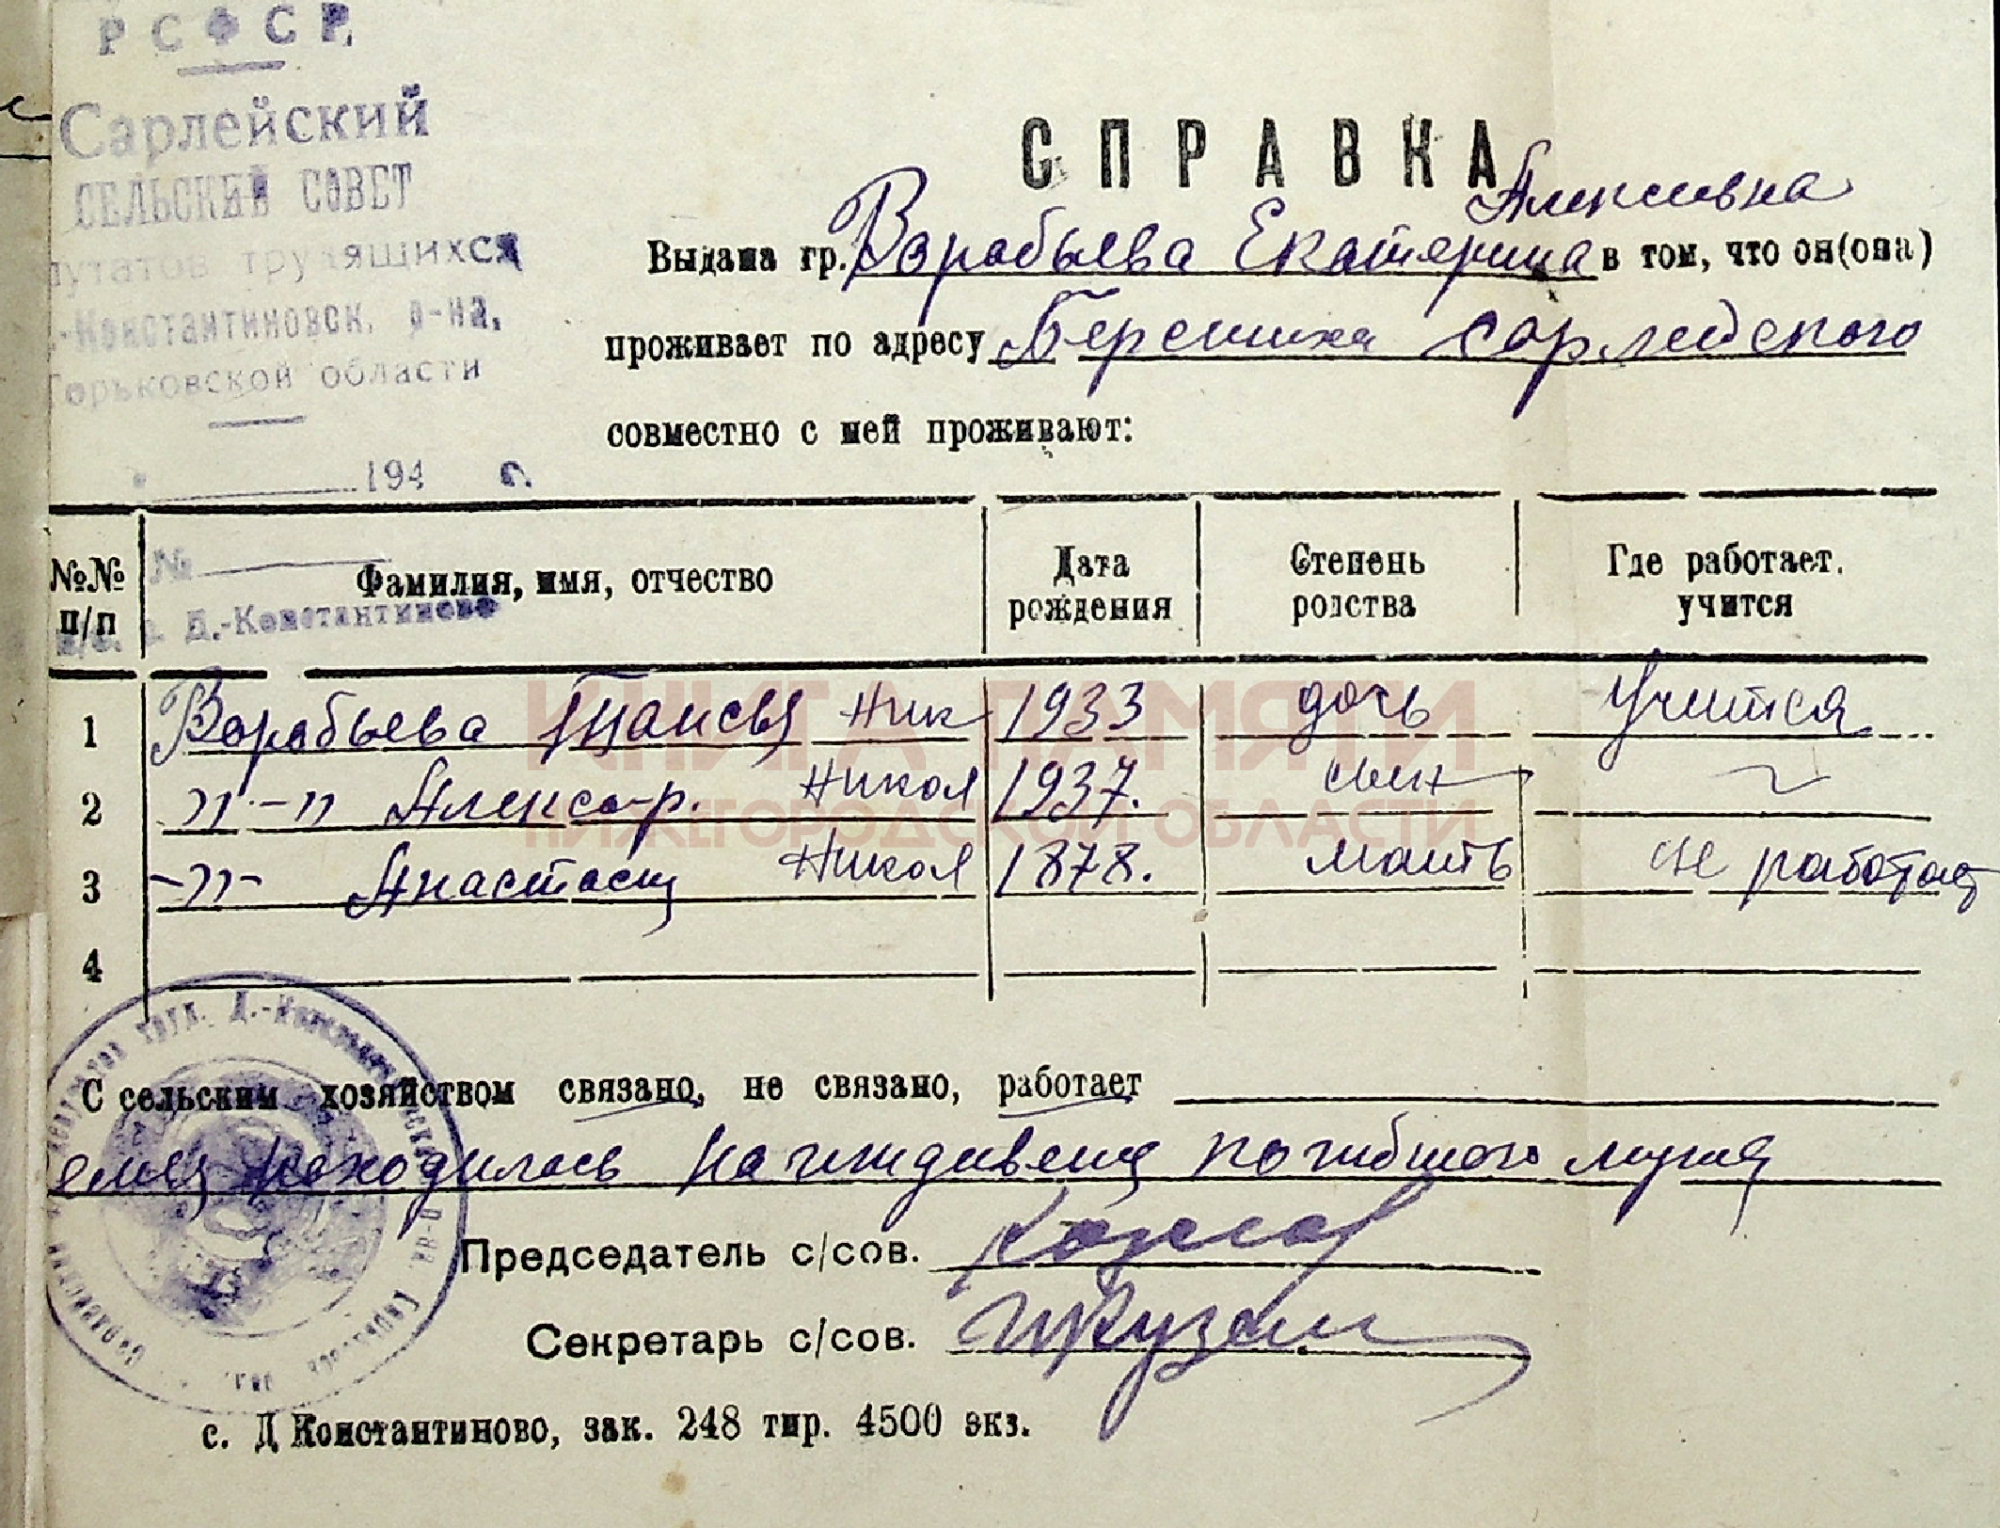 РСФСР.
Сарлейский
СЕЛЬСКИЙ СОВЕТ
путатов трудящихся
.-Константиновск. р-на,
Горьковской области
194 г.
№
п/о. Д.-Константиново
СПРАВКА
Алексеевна
Выдана гр. Воробьева Екатерина в том, что он(она)
проживает по адресу Березиха Сарлейского
совместно с ней проживают:
№№ п/п Фамилия, имя, отчество Дата рождения Степень родства Где работает. учится
1 Воробьева Таисья Ник 1933 дочь Учится
2 -"- Алекса-р. Никол 1937. сын ~
3 -"- Анастасия Никол 1878. мать не работает
4
С сельским хозяйством связано, не связано, работает
емья находилась на иждивении погибшего мужа
Председатель с/сов.
Секретарь с/сов.
с. Д Константиново, зак. 248 тир. 4500 экз.
КНИГА ПАМЯТИ
НИЖЕГОРОДСКОЙ ОБЛАСТИ